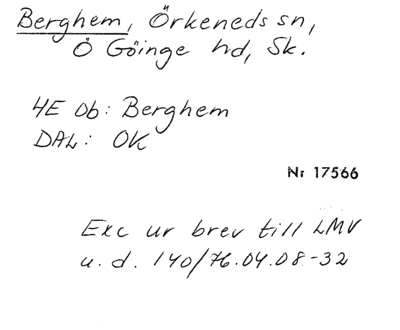 Berghem, Örkeneds sn,
Ö Göinge hd, Sk.
4E 0b: Berghem
DAL: OK
Nr 17566
Exc ur brev till LMV
u.d. 140/76.04.08-32